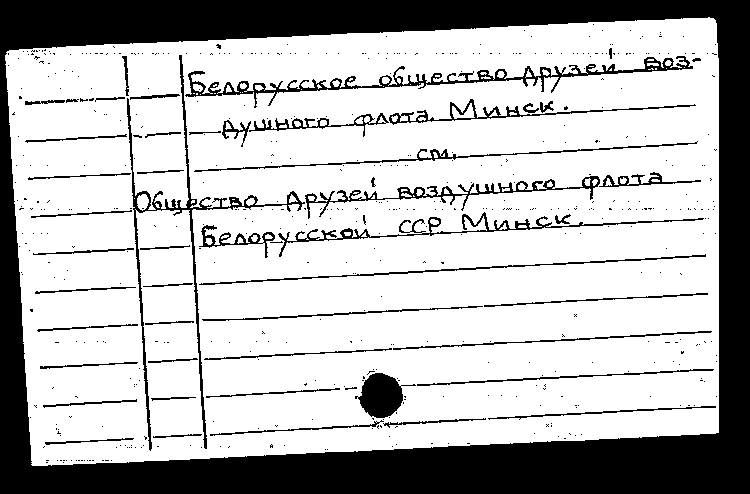 Белорусское общество друзей воз-
душного флота. Минск.
см.
Общество друзей воздушного флота
Белорусской ССР Минск.